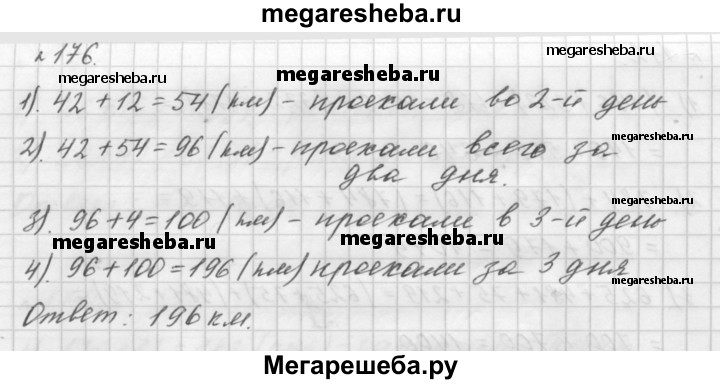 megaresheba.ru
№ 176.
megaresheba.ru
megaresheba.ru
megaresheba.ru
1). 42 + 12 = 54 (км) - проехали во 2-й день
2). 42 + 54 = 96 (км) - проехали всего за
megaresheba.ru
два дня.
3). 96 + 4 = 100 (км) - проехали в 3-й день
megaresheba.ru
megaresheba.ru
4). 96 + 100 = 196 (км) проехали за 3 дня
megaresheba.ru
Ответ: 196 км.
Мегарешеба.ру